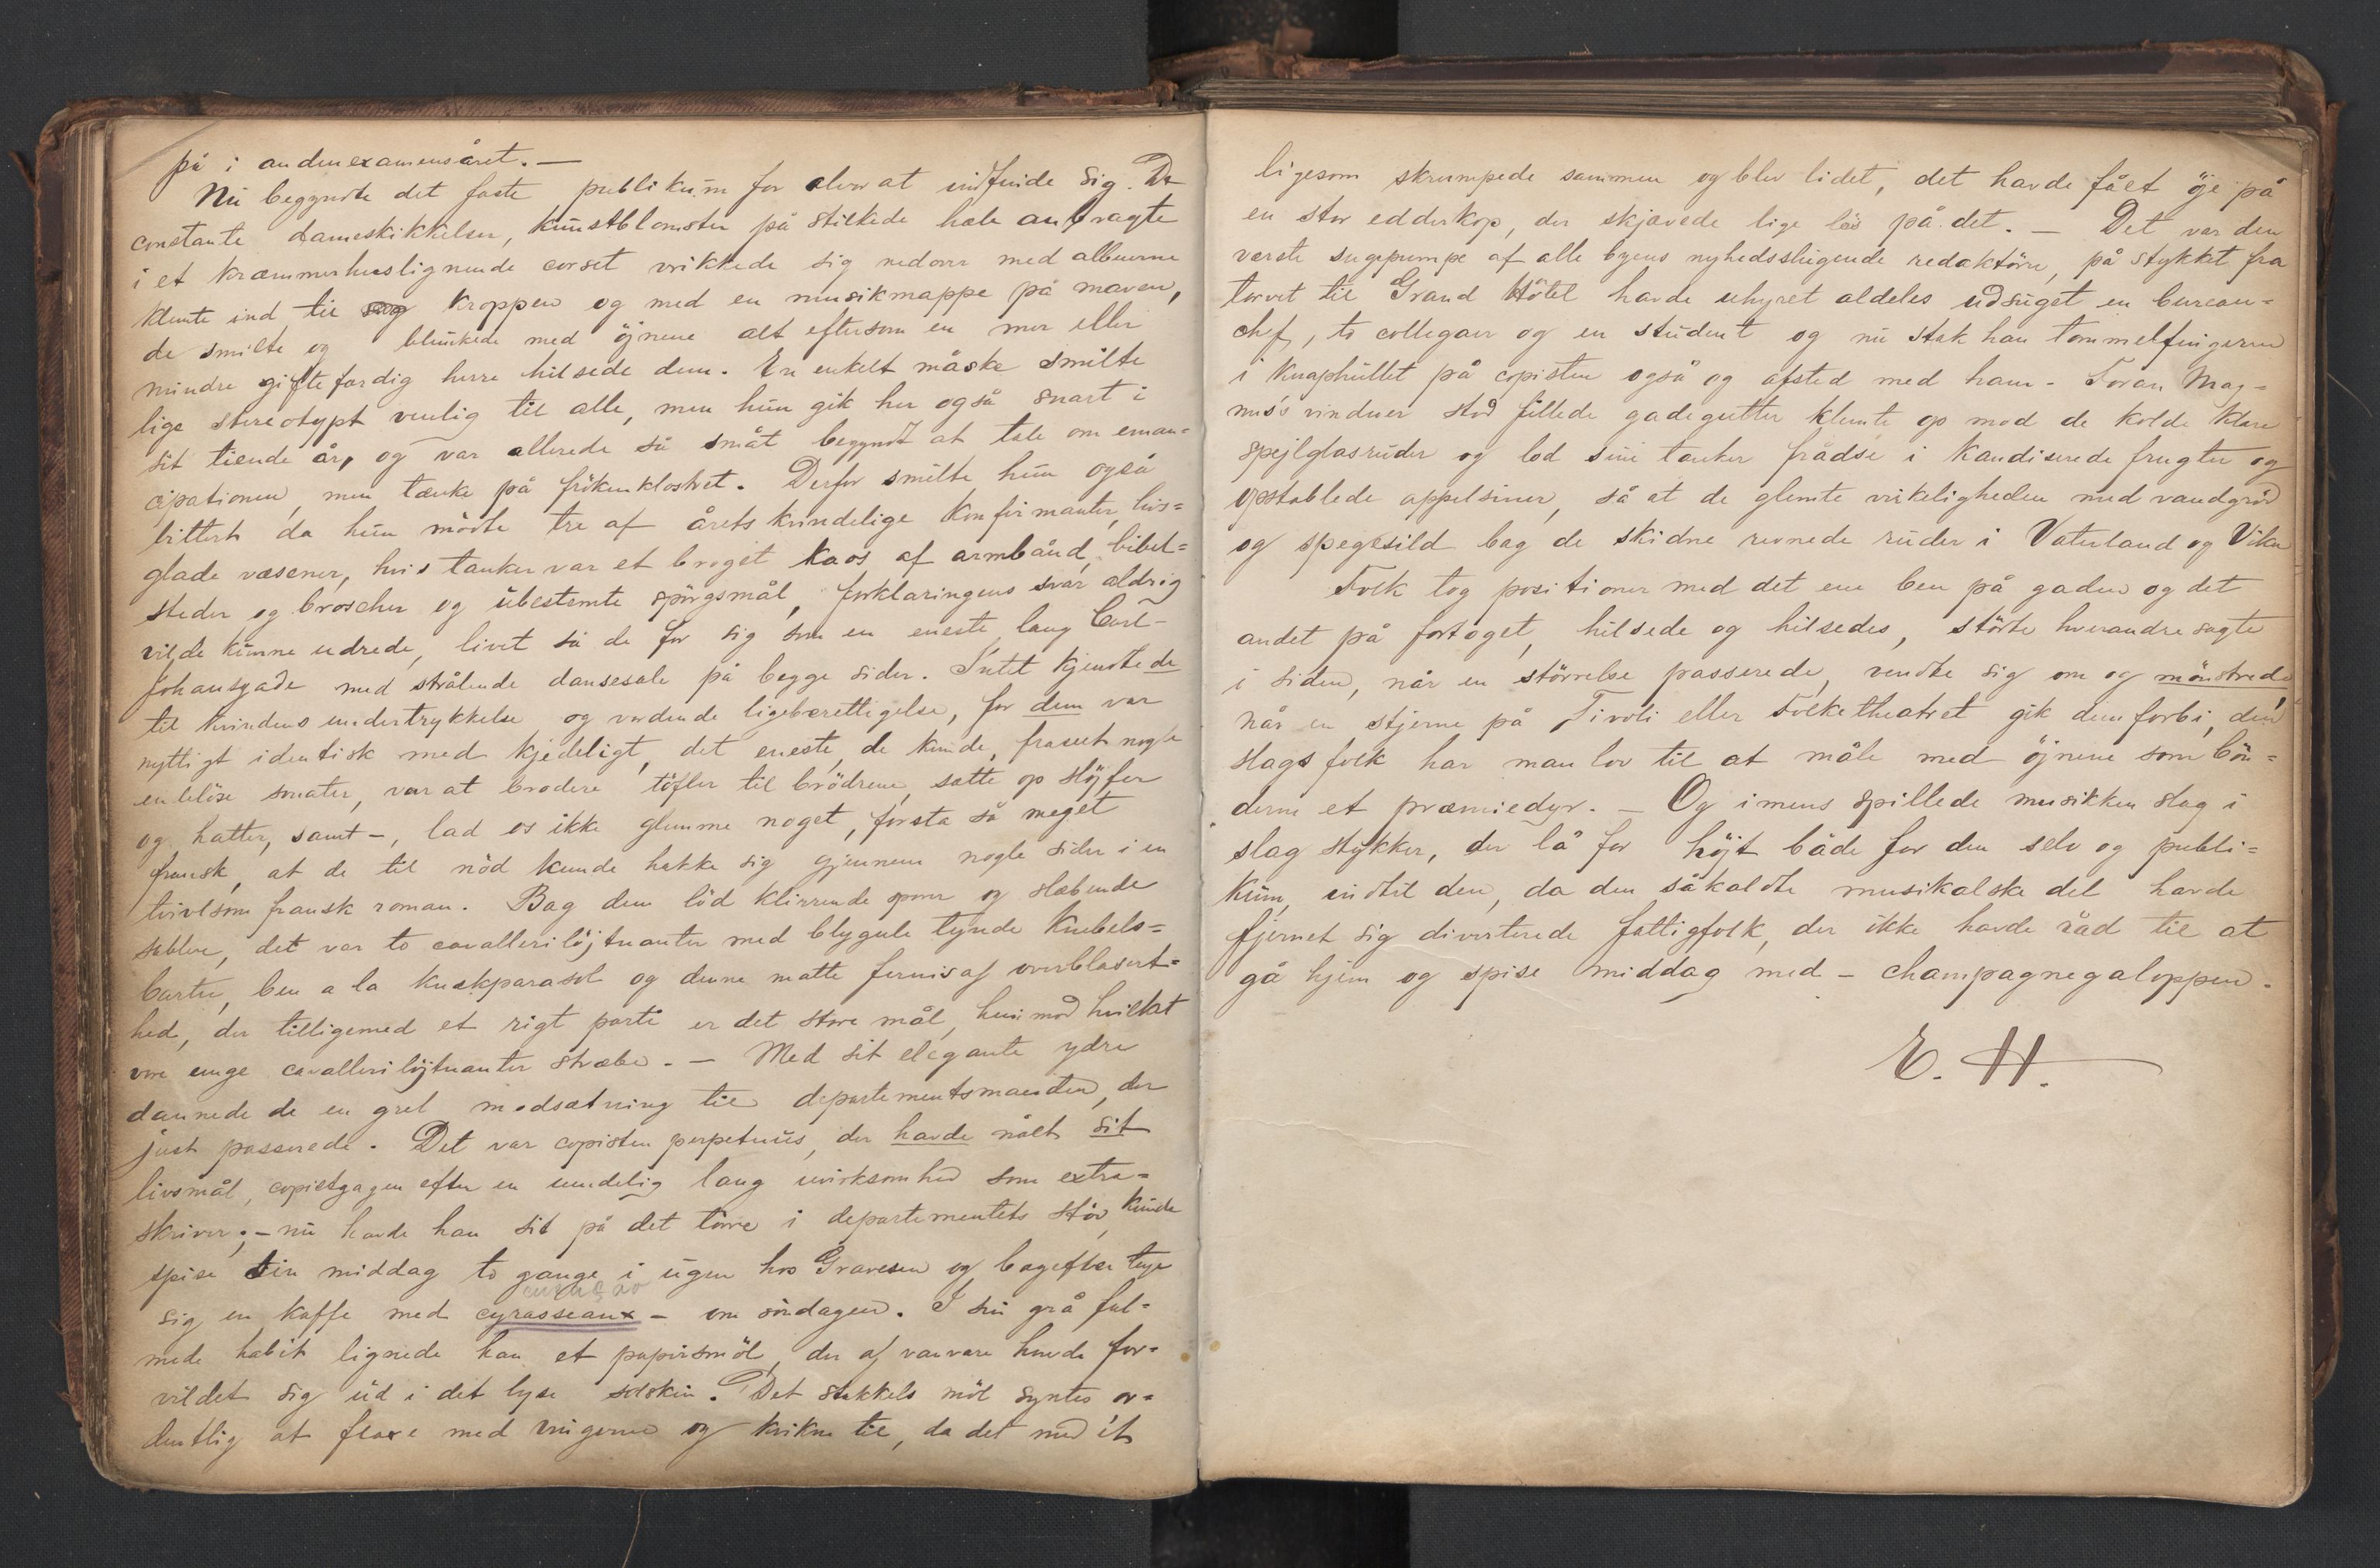 på i andenexamensåret. —
Nu begyndte det faste publikum for alvor at indfinde sig. De
constante dameskikkelser, kunstblomster på stilkede hæle anbragte
i et kræmmerhuslignende corset vrikkede sig nedover med albuerne
klemte ind til kroppen og med en musikmappe på maven,
de smilte og blunkede med öjnene alt eftersom en mer eller
mindre giftefærdig herre hilsede dem. En enkelt måske smilte
lige stereotypt venlig til alle, men hun gik her også snart i
sit tiende år, og var allerede så småt begyndt at tale om eman-
cipationen, men tænke på frökenklostret. Derfor smilte hun også
bittert da hun mödte tre af årets kvindelige konfirmanter, livs=
glade væsener, hvis tanker var et broget kaos af armbånd, bibel=
steder og broscher og ubestemte spörgsmål, forklaringens svar aldrig
vilde kunne udrede, livet så de for sig som en eneste lang Carl-
Johansgade med strålende dansesale på begge sider. Intet kjendte de
til kvindens undertrykkelse og vordende ligeberettigelse, for dem var
nyttigt identisk med kjedeligt, det eneste, de kunde, fraseet nogle
endelöse sonater, var at brodere töfler til brödrene, sætte op slöjfer
og hatter, samt –, lad os ikke glemme noget, forstå så meget
fransk, at de til nöd kunde hakke sig gjennem nogle sider i en
tvivlsom fransk roman. Bag dem löd klirrende sporer og slæbende
sabler, det var to cavalleriløjtnanter med blygule tynde knebels=
barter, ben a la kuskparasol og denne matte fernis af overblasert=
hed, der tilligemed et rigt parti er det store mål, hen mod hvilket
vore unge cavallerilöjtnanter stræbe. — Med sit elegante ydre
dannede de en grel modsætning til departementsmanden, der
just passerede. Det var copisten perpetuus, der havde nået sit
livsmål, copistgagen efter en uendelig lang uvirksomhed som extra=
skriver; – nu havde han sit på det törre i departementets stöv, kunde
spise sin middag to gange i ugen hos Gravesen og bagefter tage
sig en kaffe med cyrasseaux – om söndagen. I sin grå fal=
mede habit lignede han et papirsmöl, der af vanvare havde for=
vildet sig ud i det lyse solskin. Det stakkels möl syntes or=
dentlig at flaxe med vingerne og kvikne til, da det med ét
ligesom skrumpede sammen og blev lidet, det havde fået öje på
en stor edderkop, der skjævede lige lös på det. — Det var den
værste sugepumpe af alle byens nyhedsslugende redaktörer, på stykket fra
torvet til Grand Hôtel havde uhyret aldeles udsuget en bureau=
chef, to collegaer og en student og nu stak han tommelfingeren
i knaphullet på copisten også og afsted med ham. – Foran Mag=
nus's vinduer stod fillede gadegutter klemte op mod de kolde klare
spejlglasruder og lod sine tanker frådse i kandiserede frugter og
opstablede appelsiner, så at de glemte virkeligheden med vandgröd
og spegesild bag de skidne revnede ruder i Vaterland og Viken
Folk tog positioner med det ene ben på gaden og det
andet på fortoget, hilsede og hilsedes, störte hverandre sagte
i siden, når en störrelse passerede, vendte sig om og mönstrede
når en stjerne på Tivoli eller Folketheatret gik dem forbi, den
slags folk har man lov til at måle med öjnene som bön=
derne et præmiedyr. — Og imens spillede musikken slag i
slag stykker, der lå for höjt både for den selv og publi=
kum, indtil den, da den såkaldte musikalske del havde
fjernet sig diverterede fattigfolk, der ikke havde råd til at
gå hjem og spise middag med – champagnegaloppen.
E. H.